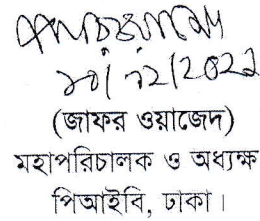 ১০/১২/২০২২
(জাফর ওয়াজেদ)
মহাপরিচালক ও অধ্যক্ষ
পিআইবি, ঢাকা।